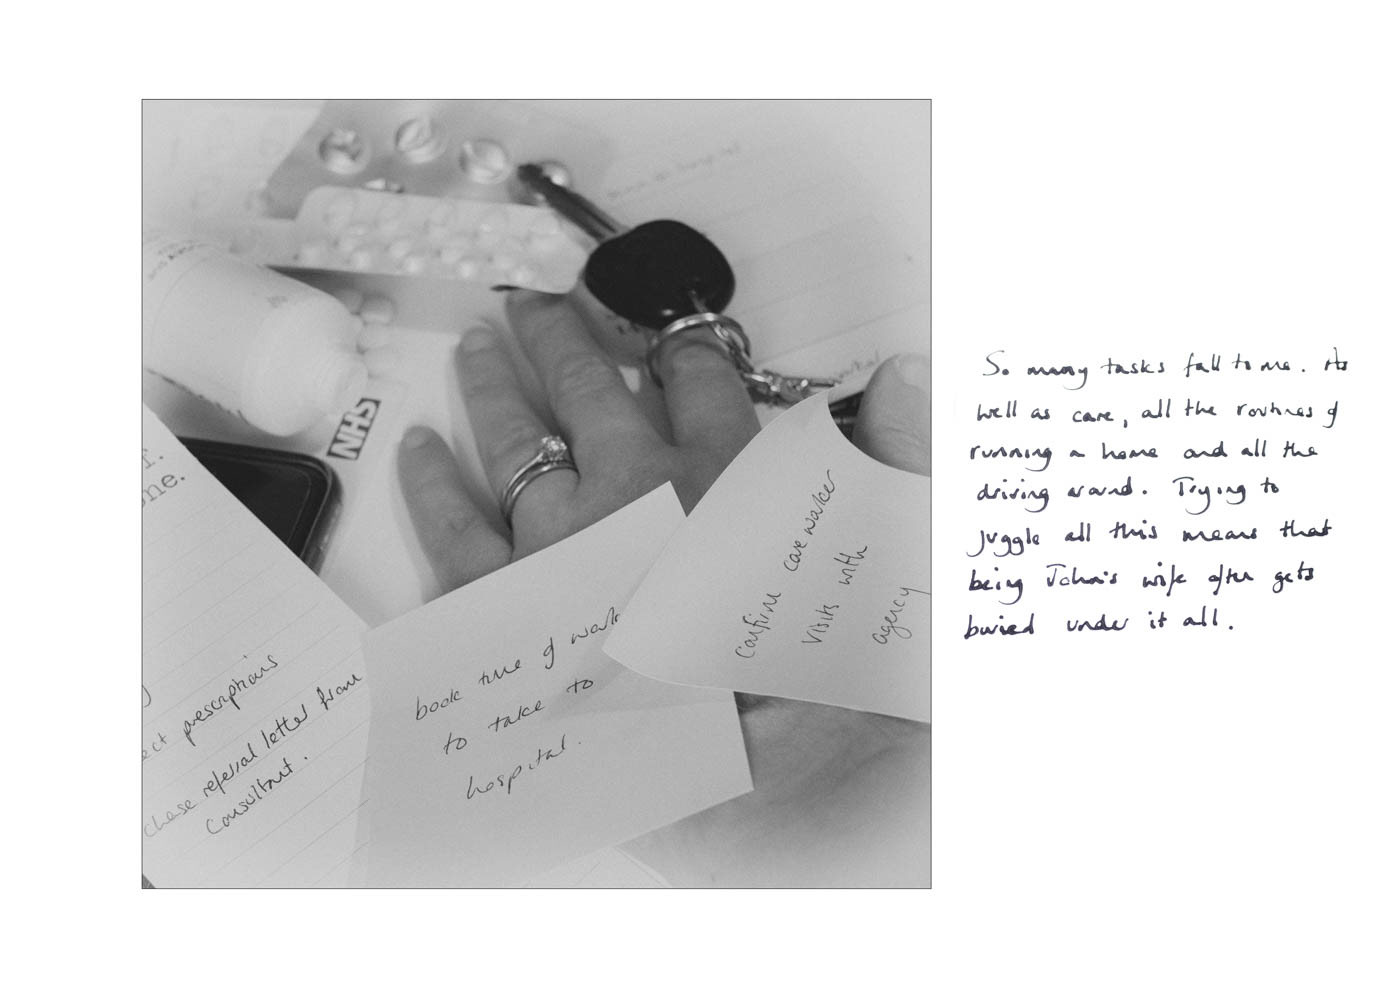 NHS
prescriptions
chase referral letter from
Consultant.
book time of work
to take to
hospital.
Confirm care worker
visits with
agency
So many tasks fall to me. As
well as care, all the routines of
running a home and all the
driving around. Trying to
juggle all this means that
being John's wife often gets
buried under it all.